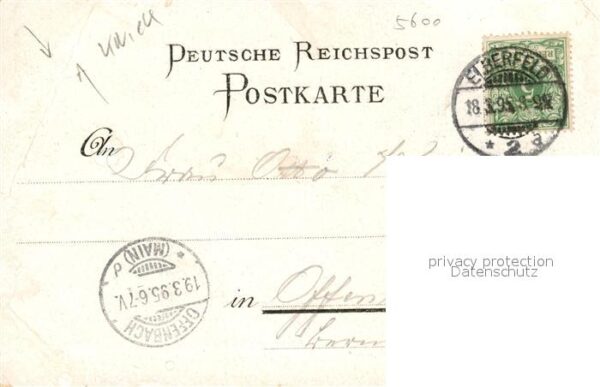 Knick
5600
DEUTSCHE REICHSPOST
POSTKARTE
ELBERFELD
18.3.95.8-9N.
* 2 a
An
Frau Otto
privacy protection
Datenschutz
(MAIN)
19.3.95.6-7V.
OFFENBACH
in Offen